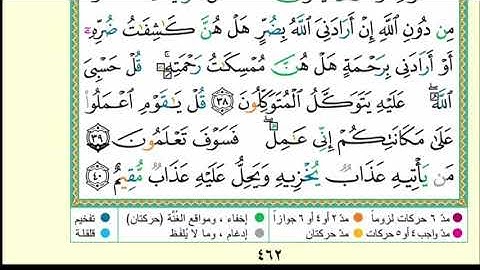 مِن دُونِ ٱللَّهِ إِنْ أَرَادَنِىَ ٱللَّهُ بِضُرٍّ هَلْ هُنَّ كَٰشِفَٰتُ ضُرِّهِۦٓ
أَوْ أَرَادَنِى بِرَحْمَةٍ هَلْ هُنَّ مُمْسِكَٰتُ رَحْمَتِهِۦۚ قُلْ حَسْبِىَ
ٱللَّهُۖ عَلَيْهِ يَتَوَكَّلُ ٱلْمُتَوَكِّلُونَ ٣٨ قُلْ يَٰقَوْمِ ٱعْمَلُوا۟
عَلَىٰ مَكَانَتِكُمْ إِنِّى عَٰمِلٌۖ فَسَوْفَ تَعْلَمُونَ ٣٩
مَن يَأْتِيهِ عَذَابٌ يُخْزِيهِ وَيَحِلُّ عَلَيْهِ عَذَابٌ مُّقِيمٌ ٤٠
مدّ ٦ حركات لزوماً مدّ ٢ أو ٤ أو ٦ جوازاً إخفاء، ومواقع الغُنَّة (حركتان) تفخيم
مدّ واجب ٤ أو ٥ حركات مدّ حركتان إدغام، وما لا يُلفَظ قلقلة
٤٦٢